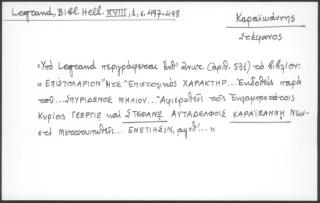 Legrand, Bibl. Hell. XVIII, 1, σ. 497-498
Καραϊωάννης
Στέφανος
«Ὑπὸ Legrand περιγράφεται ἐνθ' ἀνωτ. (ἀριθ. 531) τὸ βιβλίον:
« ΕΠΙΣΤΟΛΑΡΙΟΝ" Ἤτε "Επιστολικὸς ΧΑΡΑΚΤΗΡ... Ἐκδοθεὶς παρὰ
τοῦ... ΣΠΥΡΙΔΩΝΟΣ ΜΗΛΙΟΥ... Ἀφιερωθεὶς τοῖς Ἐντιμοτάτοις
Κυρίοις ΓΕΩΡΓΙῼ καὶ ΣΤΕΦΑΝῼ ΑΥΤΑΔΕΛΦΟΙΣ ΚΑΡΑΪΩΑΝΝΗ
... ΕΝΕΤΙΗΣΙΝ, ͵αψνθ'...»